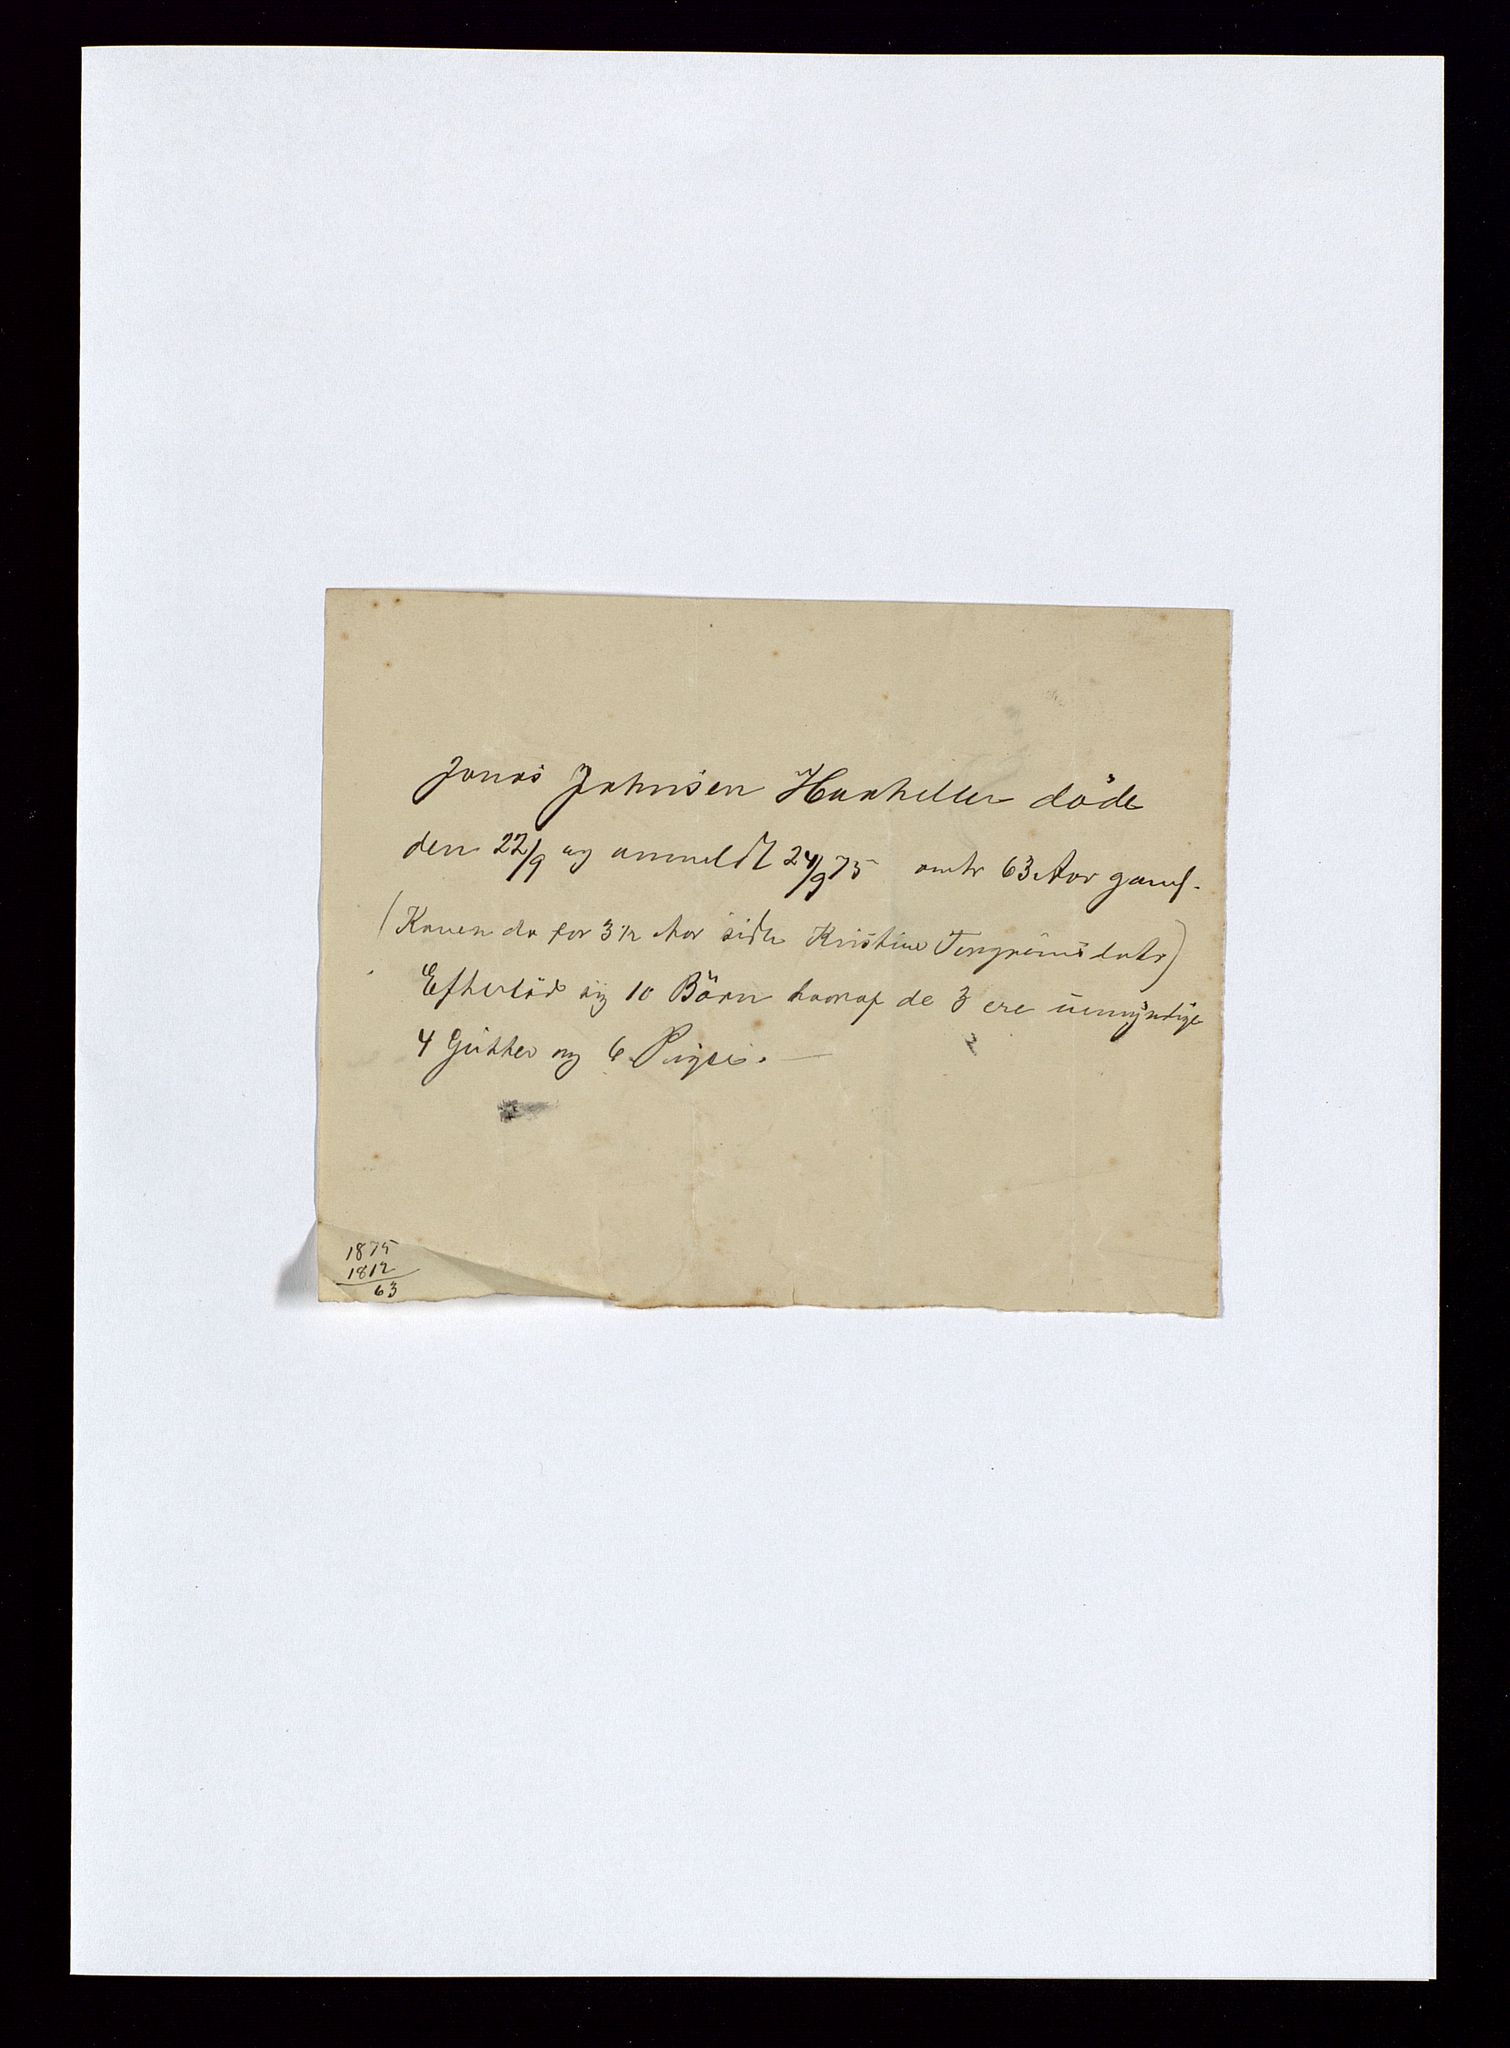 Jonas Johnsen Hanheller döde
den 22/9 og anmeldt 24/9 75 omtr 63 Aar gaml.
(Konen do for 3 1/2 Aar siden Kristine Torgrimsdatr)
Efterlod sig 10 Börn hvoraf de 3 ere umyndige
4 Gutter og 6 Piger. —
1875
1812
63